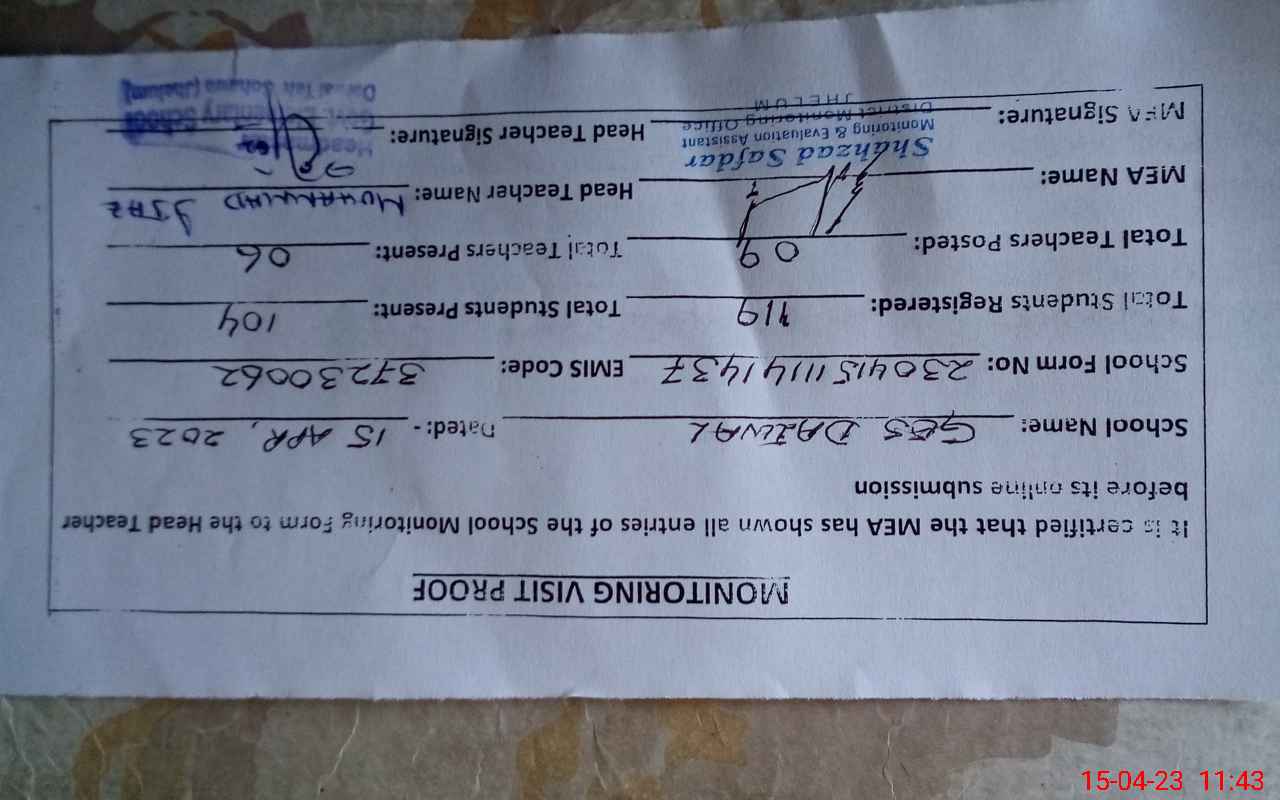 MONITORING VISIT PROOF
It is certified that the MEA has shown all entries of the School Monitoring Form to the Head Teacher
before its online submission
School Name: GES DAIWAL Dated: - 15 APR, 2023
School Form No: 23041511141437 EMIS Code: 37230062
Total Students Registered: 119 Total Students Present: 104
Total Teachers Posted: 09 Total Teachers Present: 06
MEA Name: Head Teacher Name: MUHAMMAD IJAZ
Shahzad Safdar
Monitoring & Evaluation Assistant
District Monitoring Office
JHELUM
MEA Signature: Head Teacher Signature:
Govt. Elementary School
Sohawa (Jhelum)
15-04-23 11:43